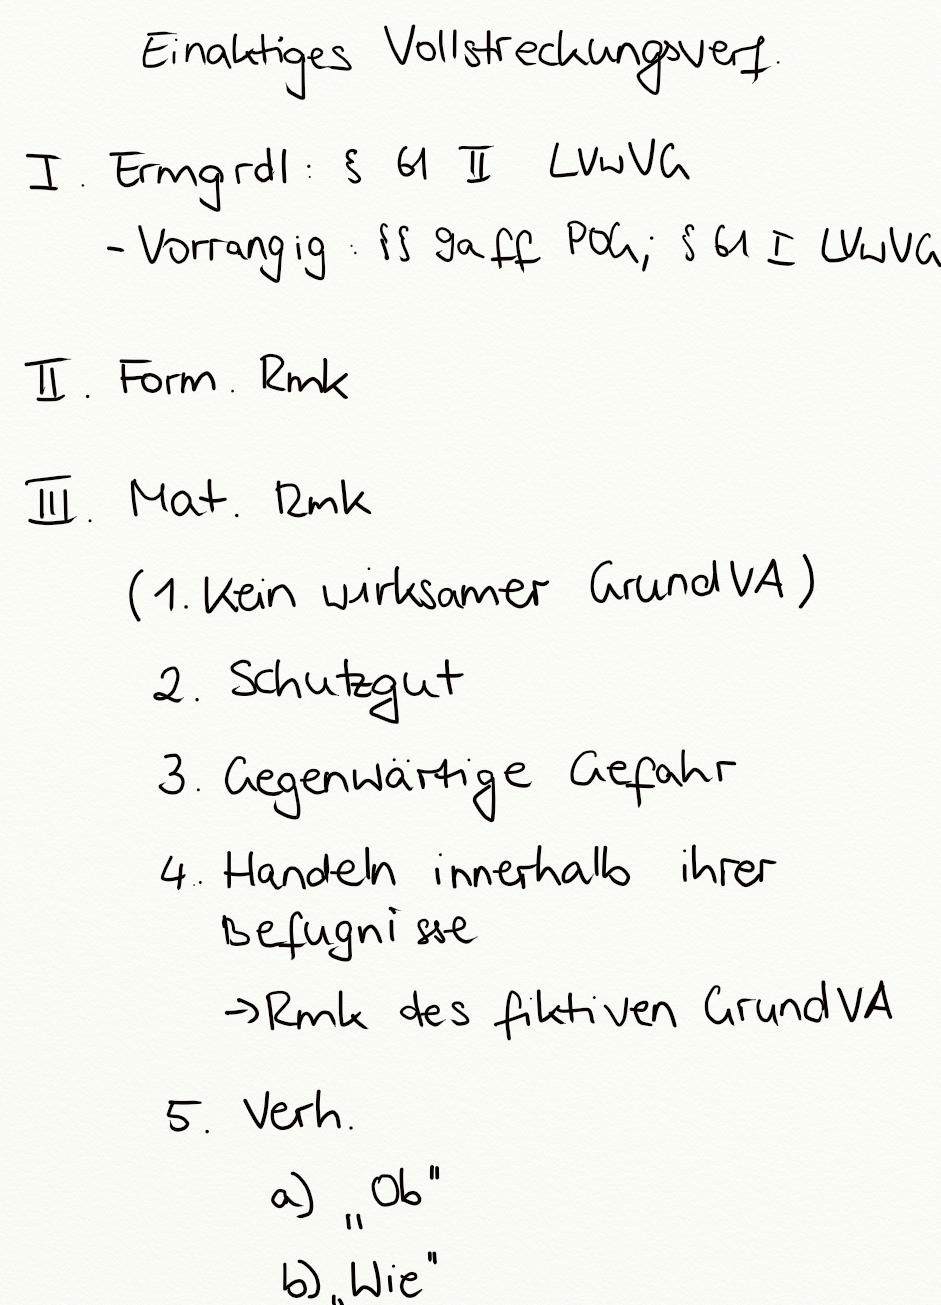 Einaktiges Vollstreckungsverf.
I. Ermgrdl: § 61 II LVwVG
- Vorrangig: §§ 9a ff POG; § 61 I LVwVG
II. Form. Rmk
III. Mat. Rmk
(1. Kein wirksamer GrundVA)
2. Schutzgut
3. Gegenwärtige Gefahr
4. Handeln innerhalb ihrer
Befugnisse
→ Rmk des fiktiven GrundVA
5. Verh.
a) „Ob"
b) „Wie"